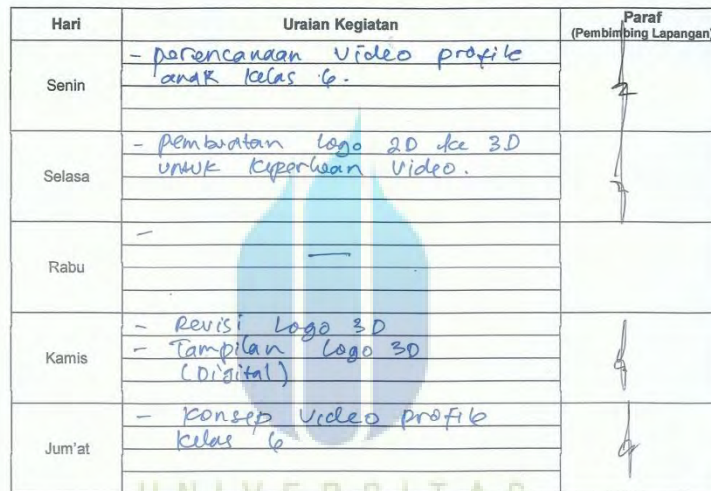 Hari
Uraian Kegiatan
Paraf
(Pembimbing Lapangan)
Senin
- perencanaan Video profile
anak kelas 6.
Selasa
- pembuatan logo 2D ke 3D
untuk keperluan Video.
Rabu
-
—
Kamis
- Revisi Logo 3D
- Tampilan Logo 3D
(Digital)
Jum'at
- Konsep Video profile
kelas 6
UNIVERSITAS